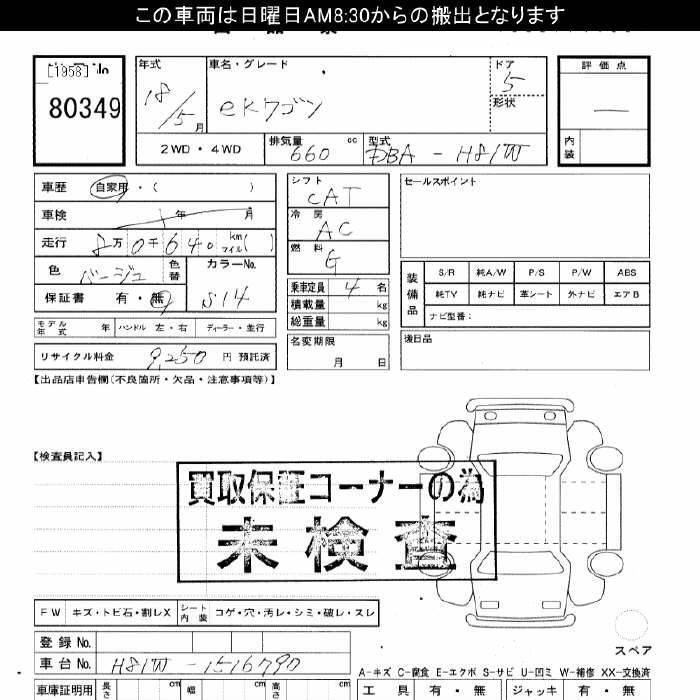 この車両は日曜日AM8:30からの搬出となります
[1958] No
80349
年式 18/5月
車名・グレード eKワゴン
ドア 5
形状
評価点 —
内装
2WD・4WD
排気量 660 cc
型式 DBA - H81W
車歴 自家用・( )
車検 年 月
走行 8万0千640 km マイル( )
色 ベージュ 色替
カラーNo. S14
保証書 有・無
モデル年式 年 ハンドル 左・右 ディーラー・並行
リサイクル料金 9,250 円 預託済
シフト CAT
冷房 AC
燃料 G
乗車定員 4 名
積載量 kg
総重量 kg
名変期限 月 日
セールスポイント
装備品
S/R 純A/W P/S P/W ABS
純TV 純ナビ 革シート 外ナビ エアB
ナビ型番：
後日品
【出品店申告欄(不良箇所・欠品・注意事項等)】
【検査員記入】
買取保証コーナーの為
未検査
FW キズ・トビ石・割レX
シート内装 コゲ・穴・汚レ・シミ・破レ・スレ
スペア
登録No.
車台No. H81W - 1516790
A-キズ C-腐食 E-エクボ S-サビ U-凹ミ W-補修 XX-交換済
車庫証明用 長さ cm 幅 cm 高さ cm
工具 有・無 ジャッキ 有・無